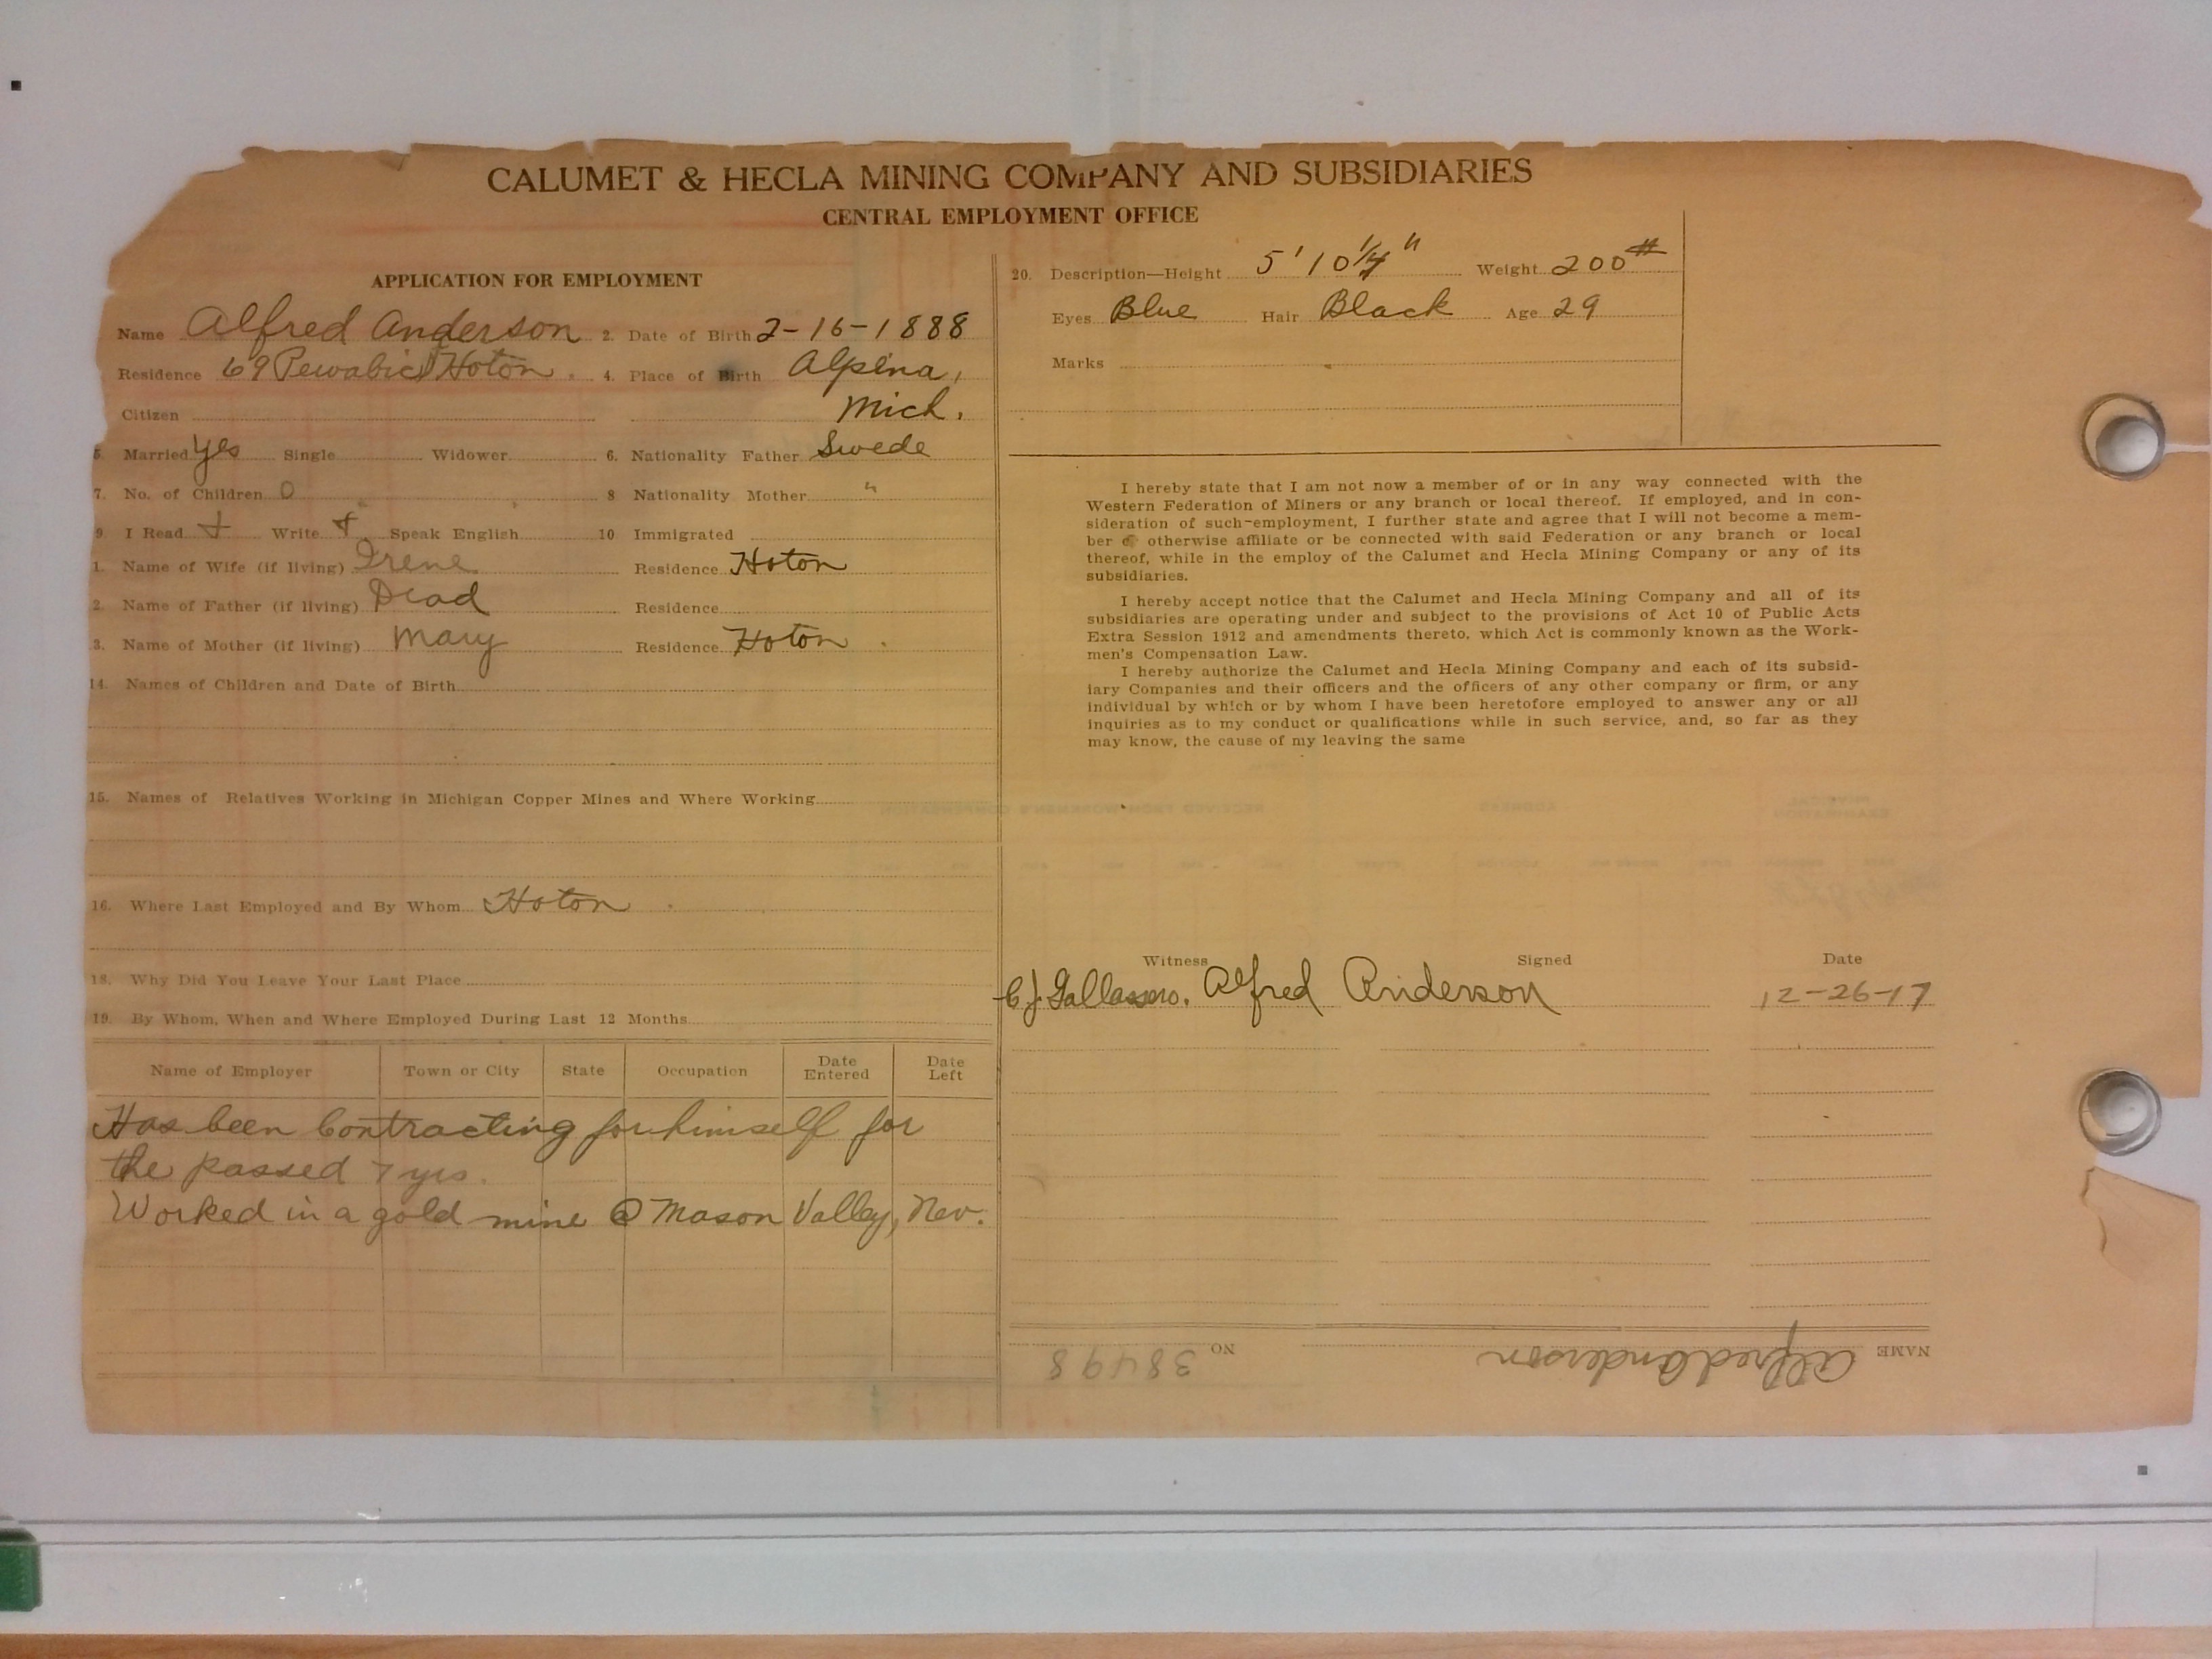 CALUMET & HECLA MINING COMPANY AND SUBSIDIARIES
CENTRAL EMPLOYMENT OFFICE
APPLICATION FOR EMPLOYMENT
Name Alfred Anderson 2. Date of Birth 2-16-1888
Residence 69 Pewabic Hoton 4. Place of Birth Alpena,
Citizen Mich.
5. Married Yes Single Widower 6. Nationality Father Swede
7. No. of Children 0 8 Nationality Mother "
9. I Read + Write + Speak English 10 Immigrated
1. Name of Wife (if living) Irene Residence Hoton
2. Name of Father (if living) Dead Residence
3. Name of Mother (if living) Mary Residence Hoton
14. Names of Children and Date of Birth
15. Names of Relatives Working in Michigan Copper Mines and Where Working
16. Where Last Employed and By Whom Hoton
18. Why Did You Leave Your Last Place
19. By Whom, When and Where Employed During Last 12 Months
Name of Employer Town or City State Occupation Date Entered Date Left
Has been Contracting for himself for
the passed 7 yrs.
Worked in a gold mine @ Mason Valley, Nev.
20. Description—Height 5' 10 1/4" Weight 200#
Eyes Blue Hair Black Age 29
Marks
I hereby state that I am not now a member of or in any way connected with the
Western Federation of Miners or any branch or local thereof. If employed, and in con-
sideration of such employment, I further state and agree that I will not become a mem-
ber or otherwise affiliate or be connected with said Federation or any branch or local
thereof, while in the employ of the Calumet and Hecla Mining Company or any of its
subsidiaries.
I hereby accept notice that the Calumet and Hecla Mining Company and all of its
subsidiaries are operating under and subject to the provisions of Act 10 of Public Acts
Extra Session 1912 and amendments thereto, which Act is commonly known as the Work-
men's Compensation Law.
I hereby authorize the Calumet and Hecla Mining Company and each of its subsid-
iary Companies and their officers and the officers of any other company or firm, or any
individual by which or by whom I have been heretofore employed to answer any or all
inquiries as to my conduct or qualifications while in such service, and, so far as they
may know, the cause of my leaving the same
Witness Signed Date
C. J. Alfred Anderson 12-26-17
NAME Alfred Anderson NO 38498